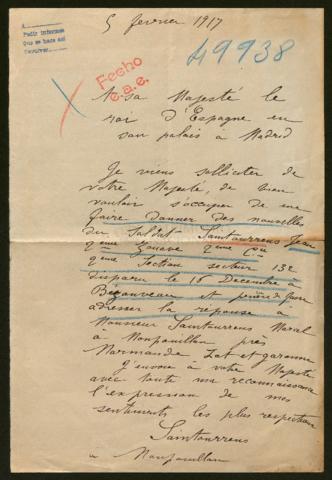 5 fevrier 1917
Pedir informes
Que se hace así
49938
Fecho
e.a.e.
A sa Majesté le
roi d'Espagne en
son palais à Madrid
Je viens solliciter de
votre Majesté, de bien
vouloir s'occuper de me
faire donner des nouvelles
du soldat Santourrens Jean
4eme Zouave 4eme Cie
4eme Section secteur 132
disparu le 16 Decembre à
Bezauveau et prière de faire
adresser la reponse à
Monsieur Santourrens Naral
à Monpouillan près
Marmande Lot et garonne
J'envoie à votre Majesté
avec toute ma reconnaissance
l'expression de mes
sentiments les plus respectueux
Santourrens
à Monpouillan